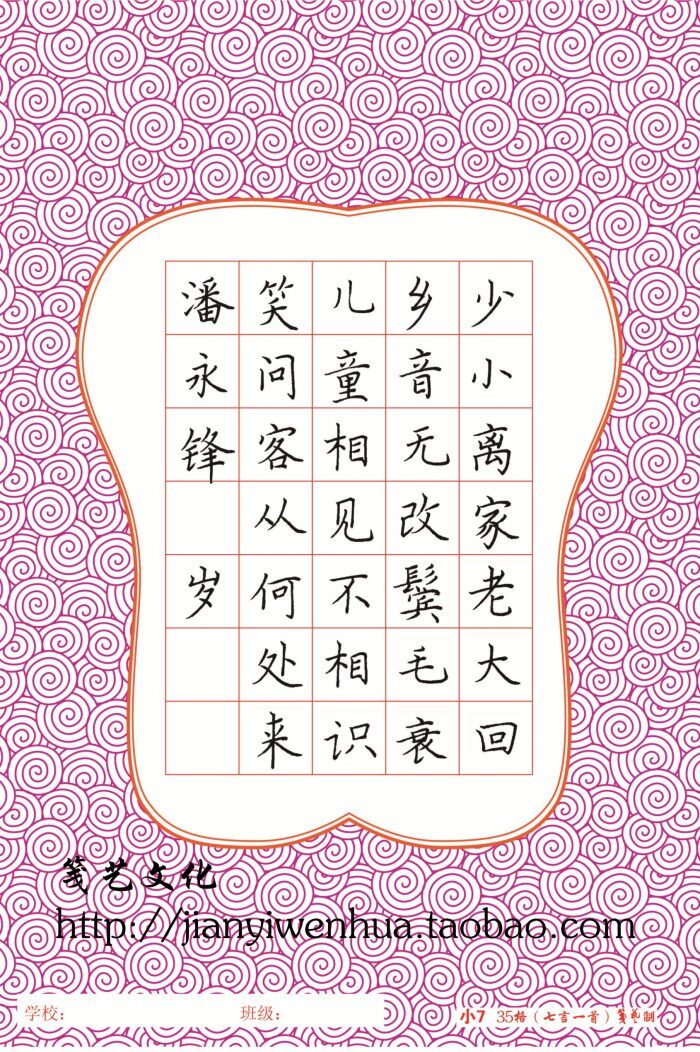 少小离家老大回
乡音无改鬓毛衰
儿童相见不相识
笑问客从何处来
潘永锋 岁
笺艺文化
http://jianyiwenhua.taobao.com
学校: 班级: 小7 35格（七言一首）笺艺制